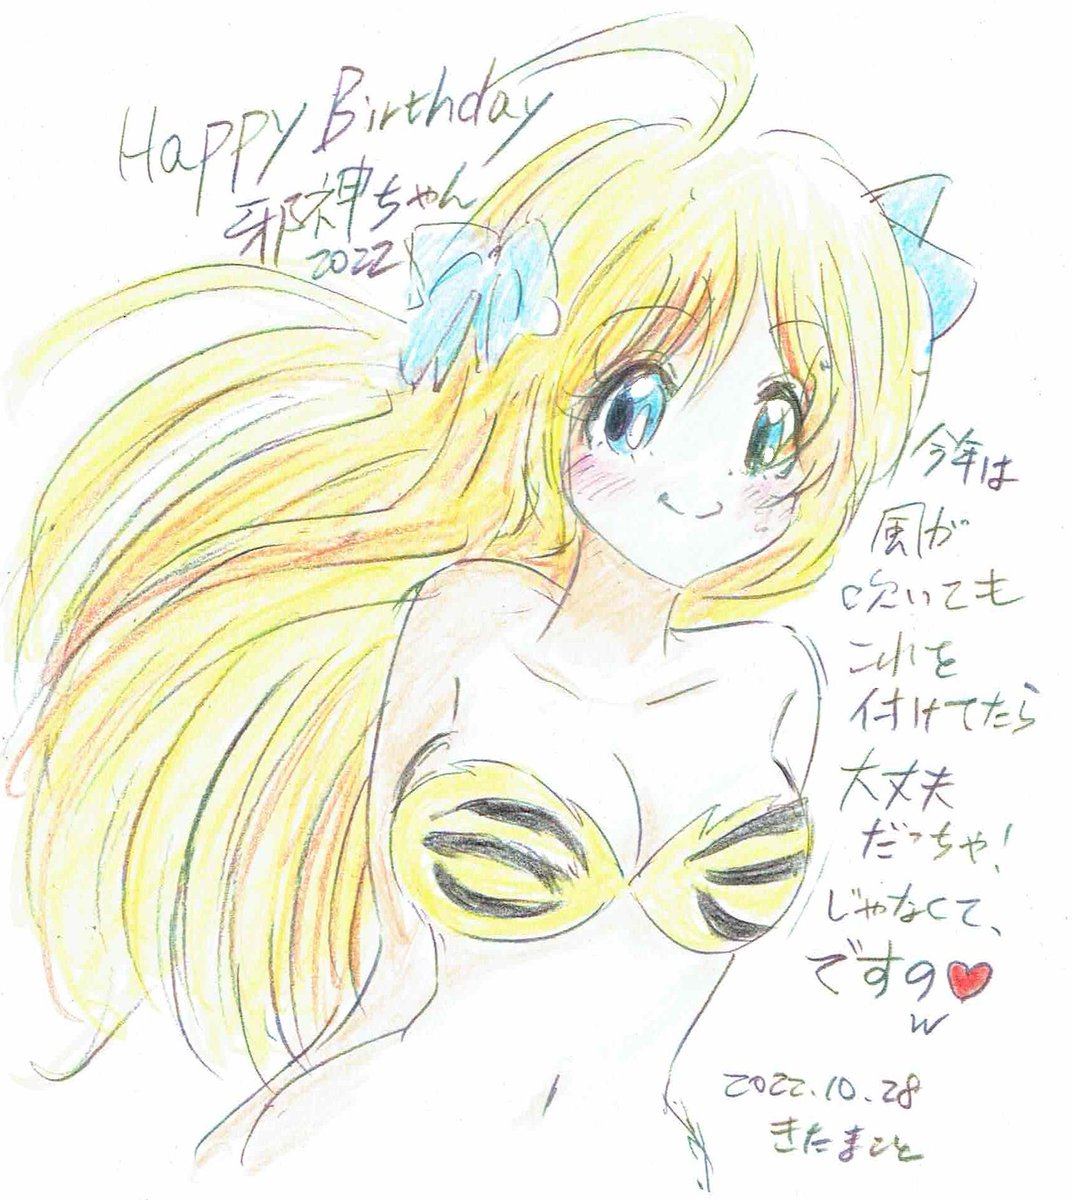 Happy Birthday
邪神ちゃん
2022
今年は
風が
吹いても
これを
付けてたら
大丈夫
だっちゃ!
じゃなくて、
ですの♥
w
2022.10.28
きたまこと